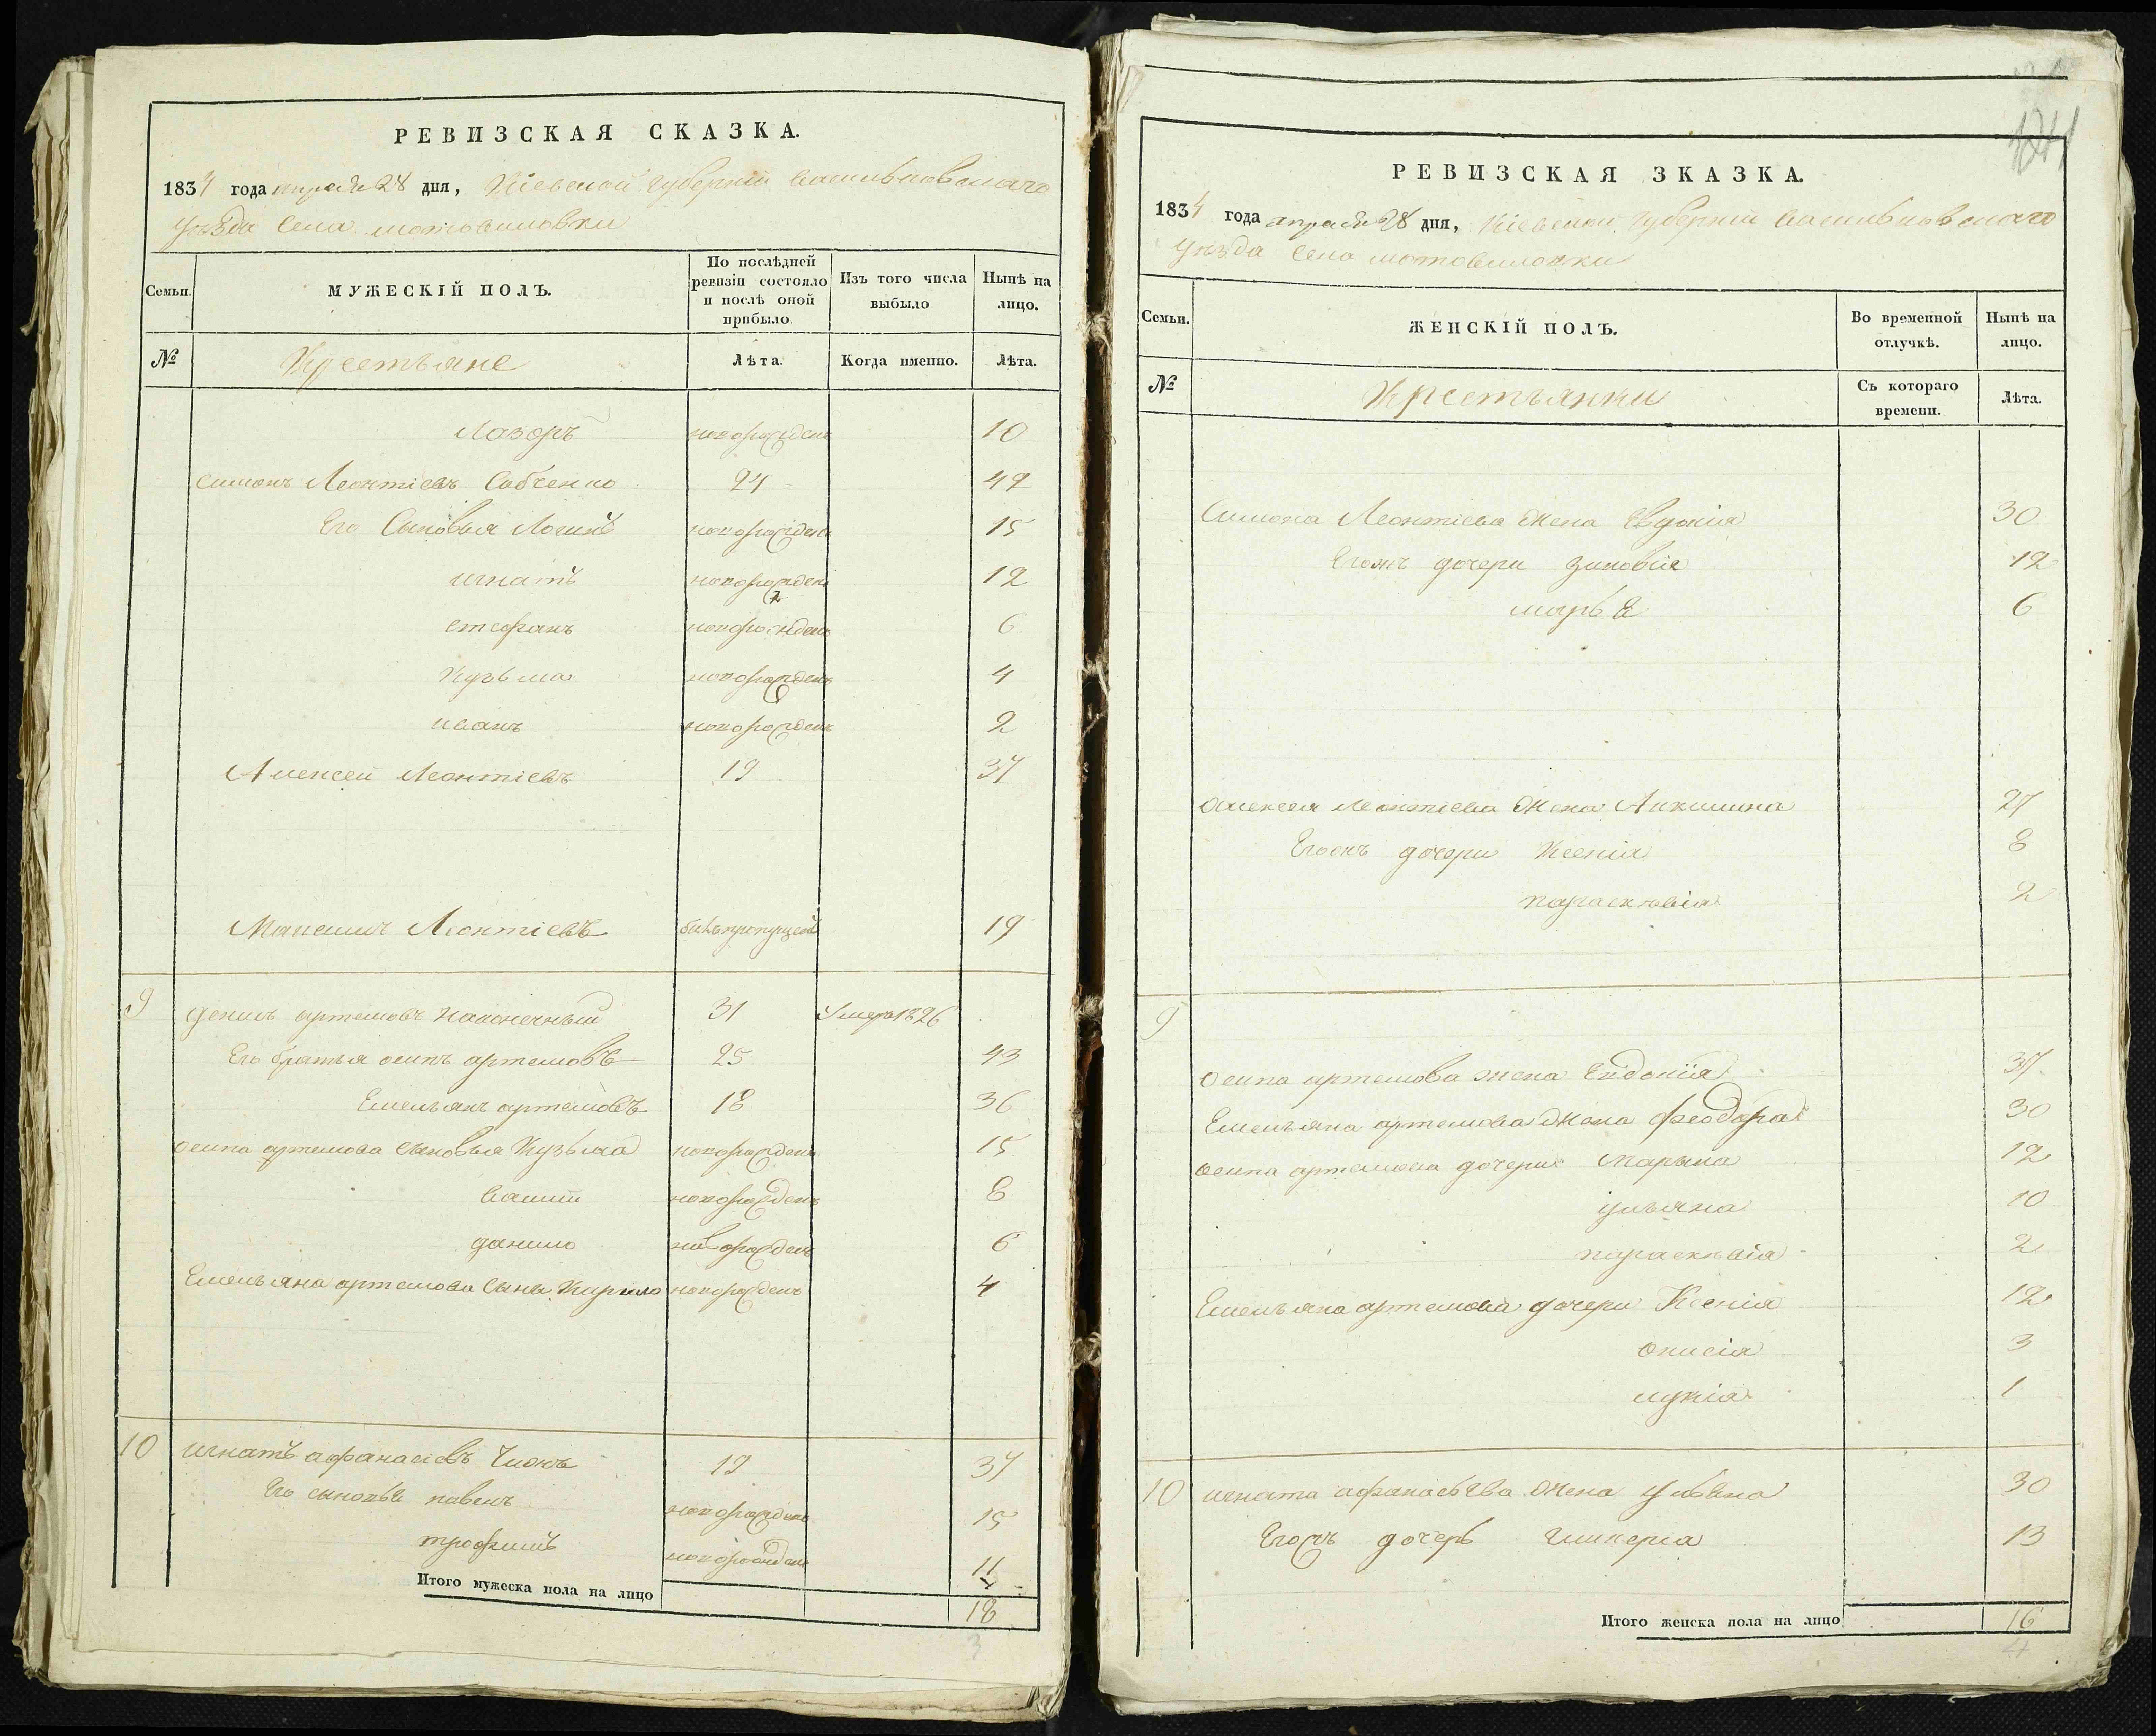 РЕВИЗСКАЯ СКАЗКА.
1834 года апреля 28 дня, Кіевской губерніи васильковскаго
уезда Села мотовиловки
Семьи.
МУЖЕСКІЙ ПОЛЪ.
По послѣдней ревизіи состояло и послѣ оной прибыло.
Изъ того числа выбыло
Нынѣ на лицо.
№
Крестьяне
Лѣта.
Когда именно.
Лѣта.
Лазоръ новорожденъ 10
Симонъ Леонтіевъ Собченко 24 42
Его Сыновья Логинъ новорожденъ 15
игнатъ новорожденъ 12
стефанъ новорожденъ 6
Кузьма новорожденъ 4
иванъ новорожденъ 2
Алексей Леонтіевъ 19 37
Максимъ Леонтіевъ былъ пропущенъ 19
9 денисъ артемовъ Наконечный 31 Умеръ 1826
Его братья осипъ артемовъ 25 43
Емельянъ артемовъ 18 36
осипа артемова сыновья Кузьма новорожденъ 15
василій новорожденъ 8
данило новорожденъ 6
Емельяна артемова Сынъ Кирило новорожденъ 4
10 игнатъ афанасіевъ 19 37
Его сыновья павелъ новорожденъ 15
трофимъ новорожденъ 11
Итого мужеска пола на лицо 18
3
РЕВИЗСКАЯ ЗКАЗКА.
1834 года апреля 28 дня, Кіевской Губерніи васильковскаго
уезда Села мотовиловки
Семьи.
ЖЕНСКІЙ ПОЛЪ.
Во временной отлучкѣ.
Нынѣ на лицо.
№
Крестьянки
Съ котораго времени.
Лѣта.
Симона Леонтіева жена Евдокія 30
Егожъ дочери зиновія 12
марья 6
алексея Леонтіева жена Акилина 27
Егожъ дочери Ксенія 8
параскевія 2
9
осипа артемова жена Евдокія 37
Емельяна артемова жена феодора 30
осипа артемова дочери марьяна 12
ульяна 10
параскевія 2
Емельяна артемова дочери Ксенія 12
онисія 3
лукія 1
10 игната афанасьева жена ульяна 30
Егожъ дочерь гликерія 13
Итого женска пола на лицо 16
4